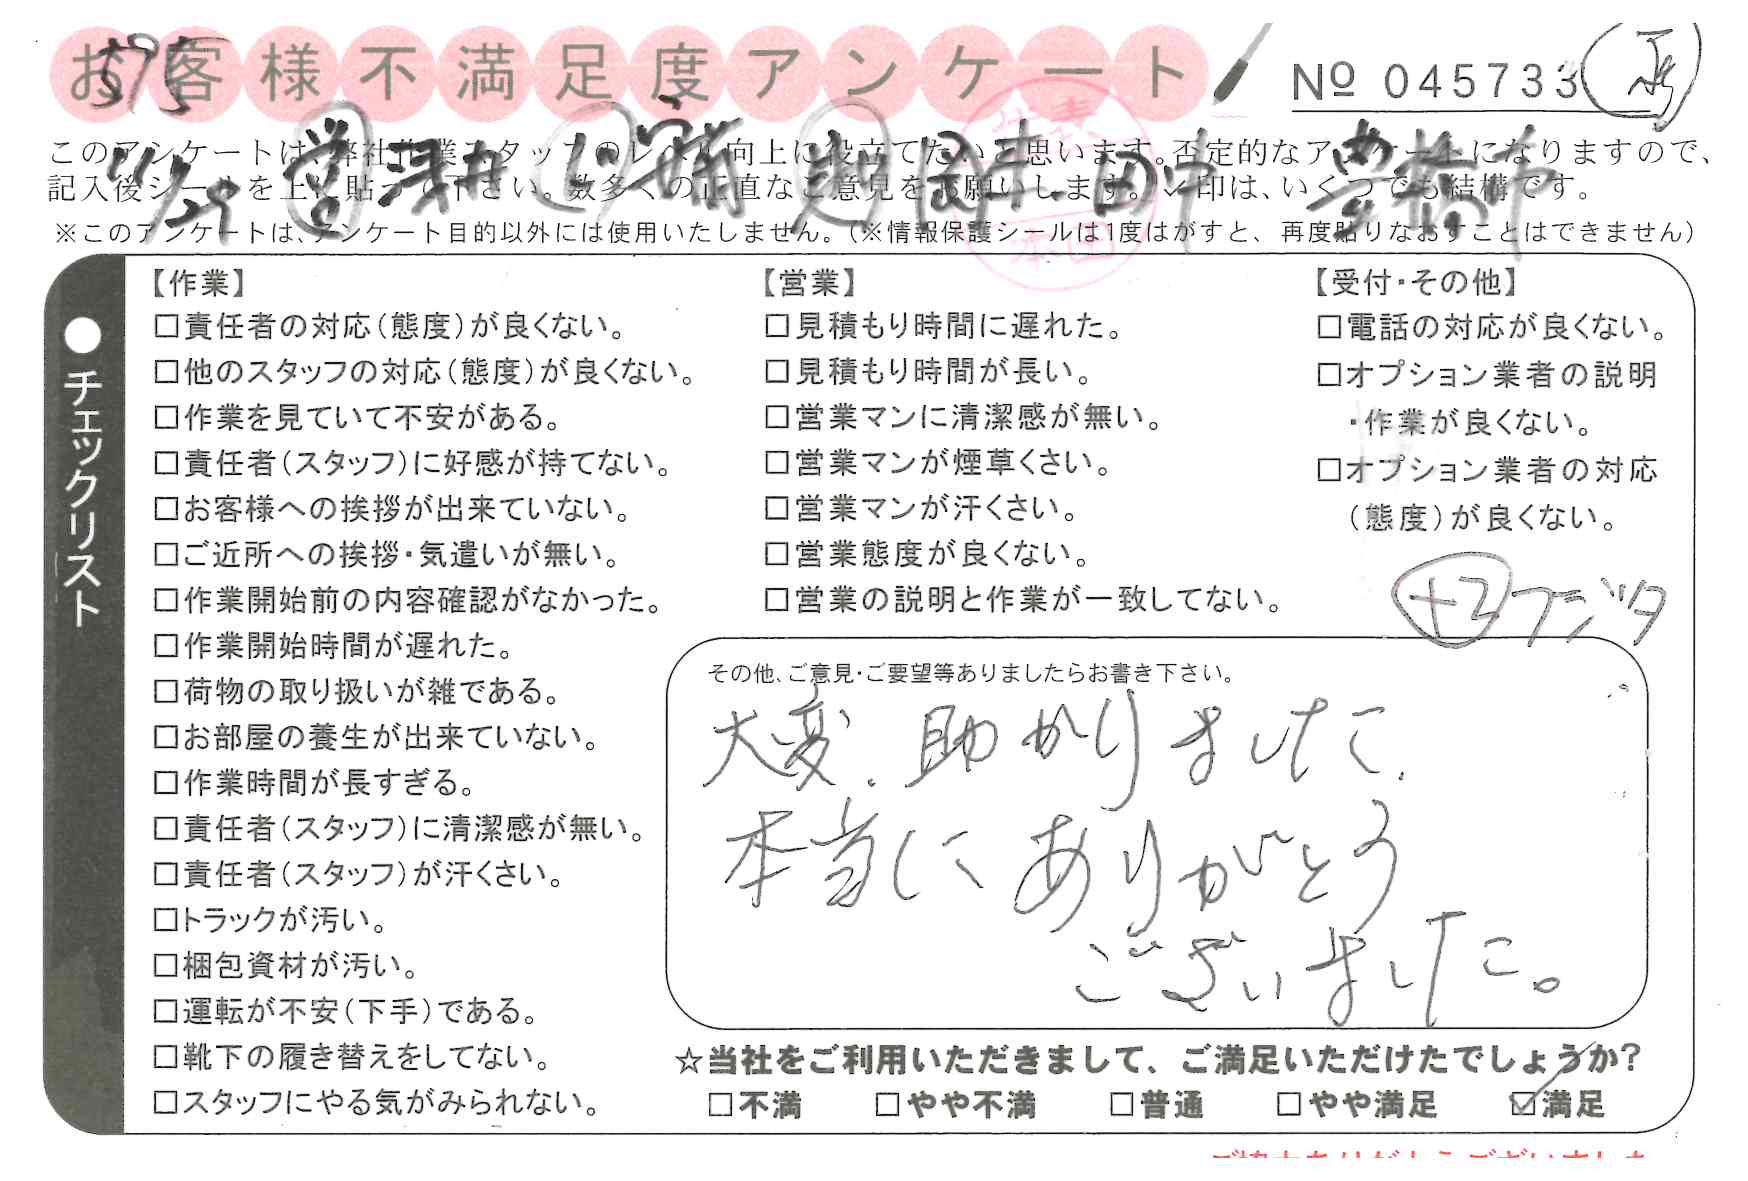 お客様不満足度アンケート
№ 045733
このアンケートは、弊社作業スタッフのレベル向上に役立てたいと思います。否定的なアンケートになりますので、
記入後シールを上に貼って下さい。数多くの正直なご意見をお願いします。レ印は、いくつでも結構です。
※このアンケートは、アンケート目的以外には使用いたしません。(※情報保護シールは1度はがすと、再度貼りなおすことはできません)
●チェックリスト
【作業】
□責任者の対応(態度)が良くない。
□他のスタッフの対応(態度)が良くない。
□作業を見ていて不安がある。
□責任者(スタッフ)に好感が持てない。
□お客様への挨拶が出来ていない。
□ご近所への挨拶・気遣いが無い。
□作業開始前の内容確認がなかった。
□作業開始時間が遅れた。
□荷物の取り扱いが雑である。
□お部屋の養生が出来ていない。
□作業時間が長すぎる。
□責任者(スタッフ)に清潔感が無い。
□責任者(スタッフ)が汗くさい。
□トラックが汚い。
□梱包資材が汚い。
□運転が不安(下手)である。
□靴下の履き替えをしてない。
□スタッフにやる気がみられない。
【営業】
□見積もり時間に遅れた。
□見積もり時間が長い。
□営業マンに清潔感が無い。
□営業マンが煙草くさい。
□営業マンが汗くさい。
□営業態度が良くない。
□営業の説明と作業が一致してない。
【受付・その他】
□電話の対応が良くない。
□オプション業者の説明
・作業が良くない。
□オプション業者の対応
(態度)が良くない。
その他、ご意見・ご要望等ありましたらお書き下さい。
大変、助かりました、
本当にありがとう
ございました。
☆当社をご利用いただきまして、ご満足いただけたでしょうか?
□不満 □やや不満 □普通 □やや満足 ☑満足